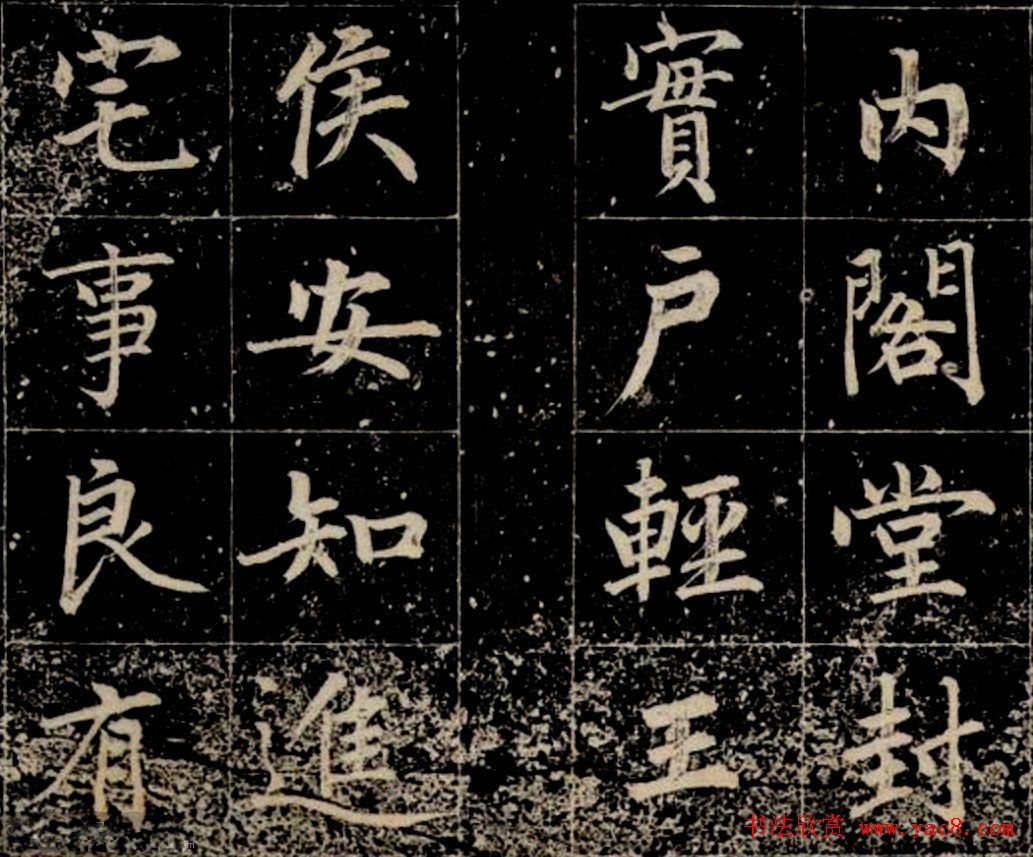 内閣堂封
實户輕王
侯安知進
宅事良有
书法欣赏 www.yac8.com